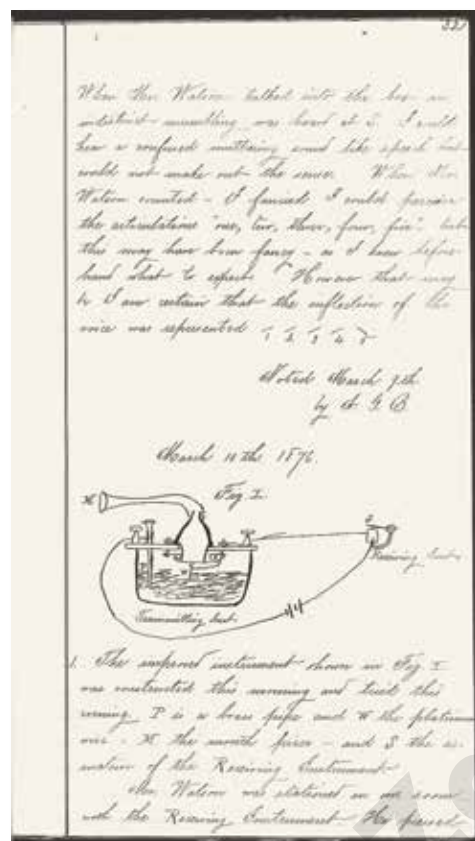 When Mr. Watson talked into the box an
indistinct mumbling was heard at S. I could
hear a confused muttering sound like speech but
could not make out the sense. When Mr.
Watson counted - I fancied I could perceive
the articulations "one, two, three, four, five" - but
this may have been fancy - as I knew before
hand what to expect. However that may
be I am certain that the inflection of the
voice was represented 1 2 3 4 5
Noted March 9th
by A. G. B.
March 10th 1876.
Fig 1.
M
S
Receiving Inst.
Transmitting Inst.
1. The improved instrument shown in Fig I
was constructed this morning and tried this
evening. P is a brass pipe and W the platinum
wire - M the mouth piece - and S the ar-
mature of the Receiving Instrument.
Mr. Watson was stationed in one room
with the Receiving Instrument. He pressed